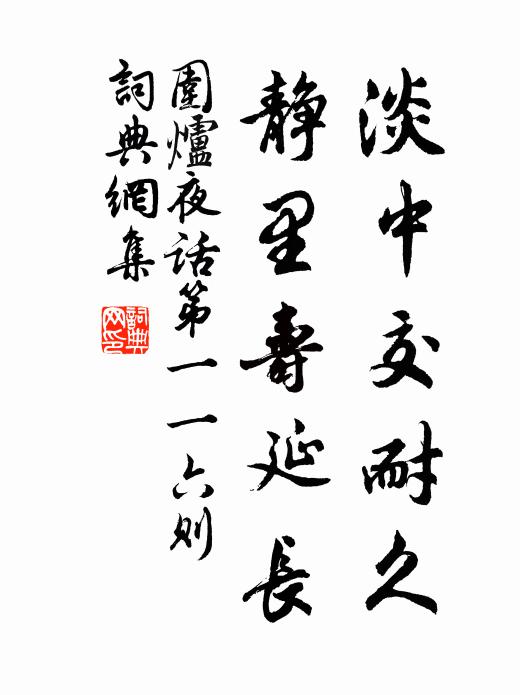 淡中交耐久
静里壽延長
圍爐夜话第一一六则
詞典網集
詞典网印